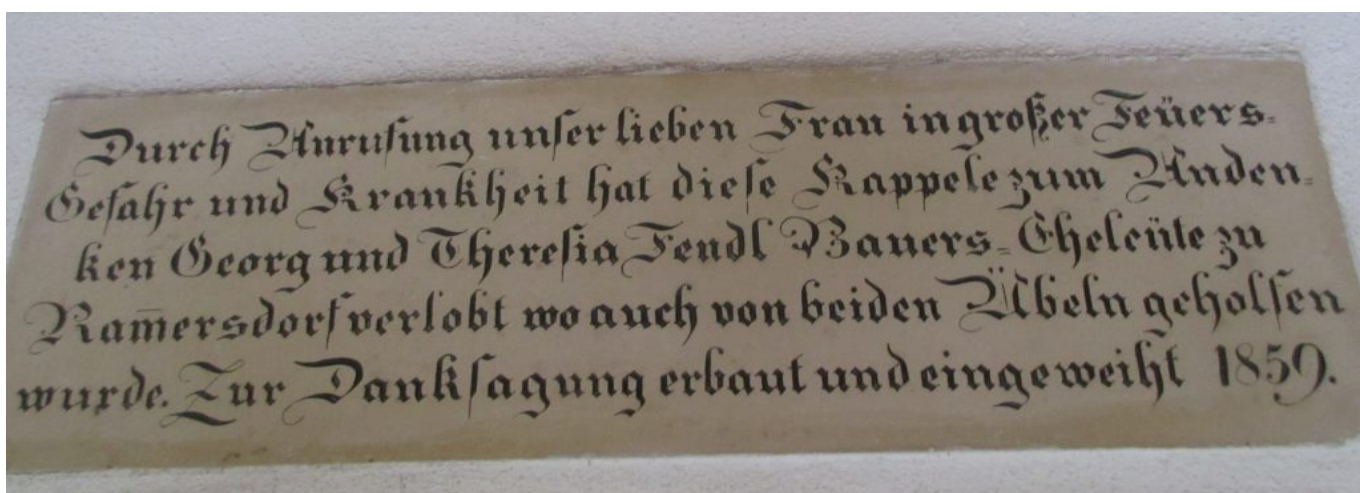 Durch Anrufung unser lieben Frau in großer Feüers=
Gefahr und Krankheit hat diese Kappele zum Anden=
ken Georg und Theresia Fendl Bauers=Eheleüte zu
Ram̅ersdorf verlobt wo auch von beiden Übeln geholfen
wurde. Zur Danksagung erbaut und eingeweiht 1859.